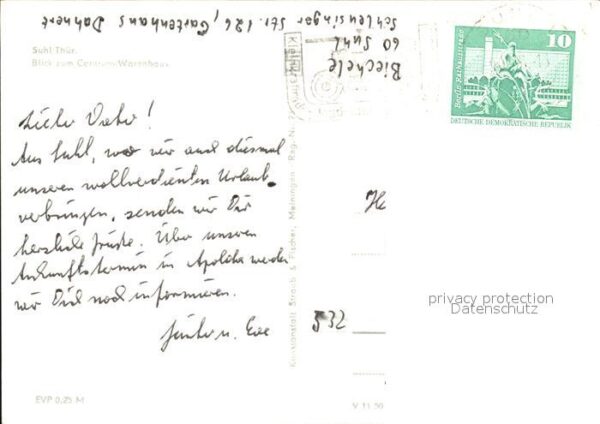 Schleusinger Str. 126, Gartenhaus Dahnert
60 Suhl
Biechele
Suhl Thür.
Blick zum Centrum-Warenhaus
Lieber Vater!
Aus Suhl, wo wir auch diesmal
unseren wohlverdienten Urlaub
verbringen, senden wir Dir
herzliche Grüße. Über unseren
Ankunftstermin in Apolda werden
wir Dich noch informieren.
Günter u. Eve
EVP 0,25 M
Kunstanstalt Straub & Fischer, Meiningen Reg. Nr.
V 11 50
10
Berlin, Rathausstraße
DEUTSCHE DEMOKRATISCHE REPUBLIK
He
532
privacy protection
Datenschutz